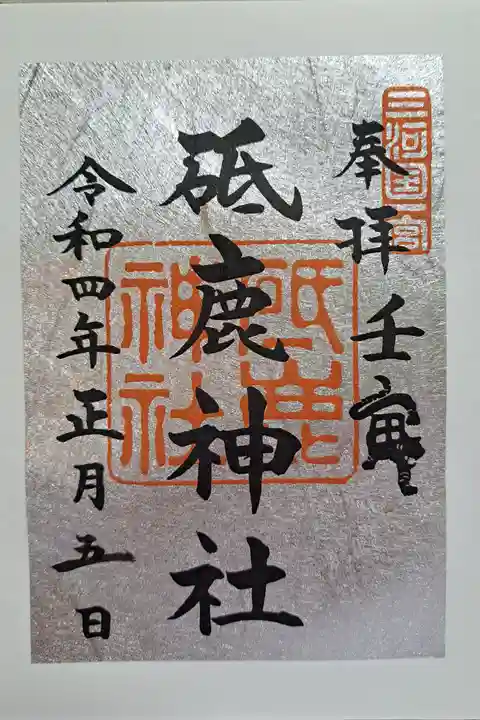 三河国一宮
奉拝 壬寅
砥鹿神社
砥鹿
神社
令和四年正月五日